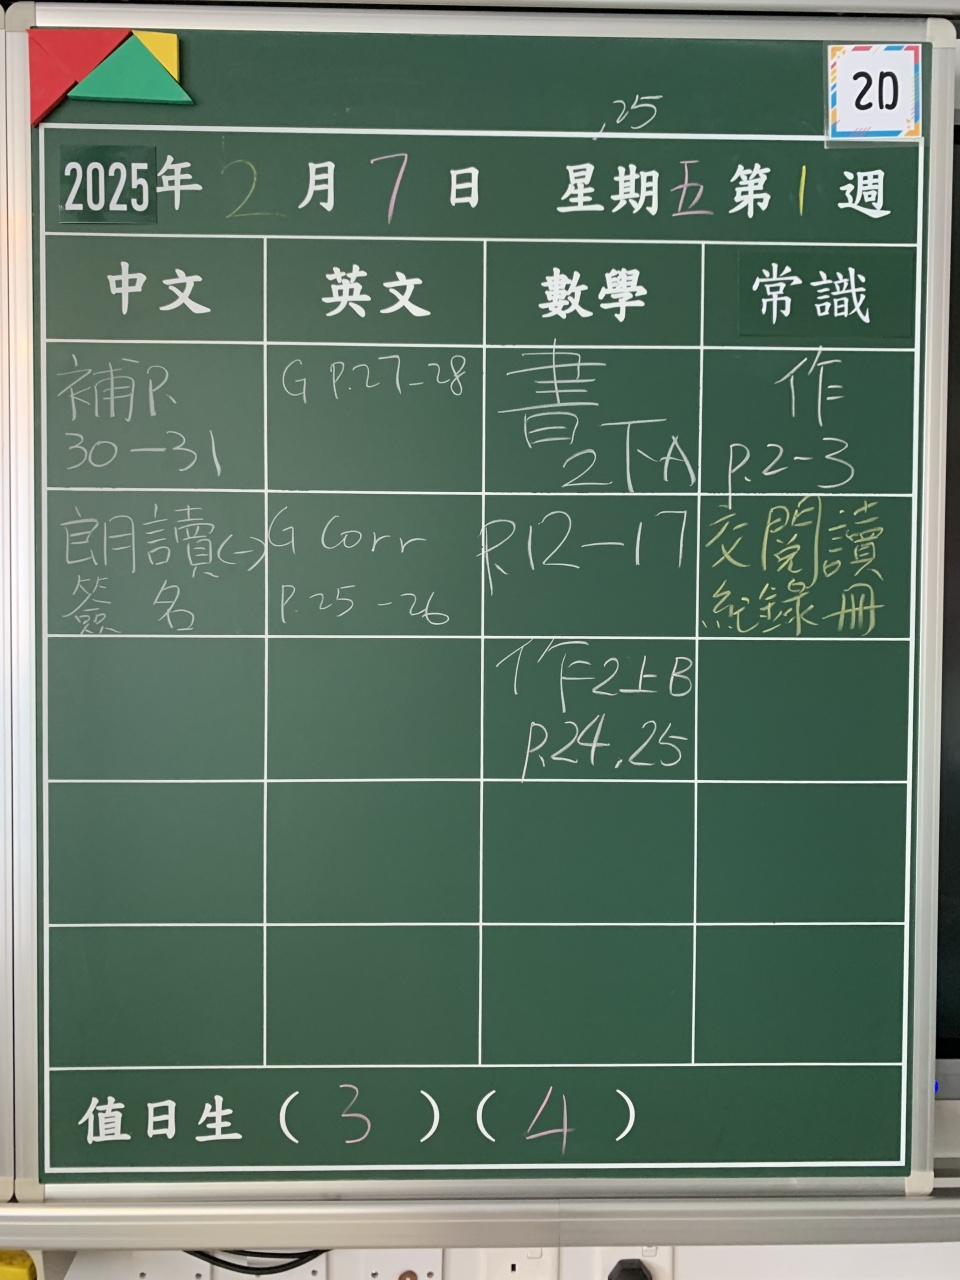 ,25
2D
2025年2月7日 星期五第1週
中文 英文 數學 常識
補P.
30-31
G P.27-28
書
2下A
作
P.2-3
朗讀(一)
簽名
G Corr
P.25-26
P.12-17
交閱讀
紀錄冊
作2上B
P.24,25
值日生(3)(4)